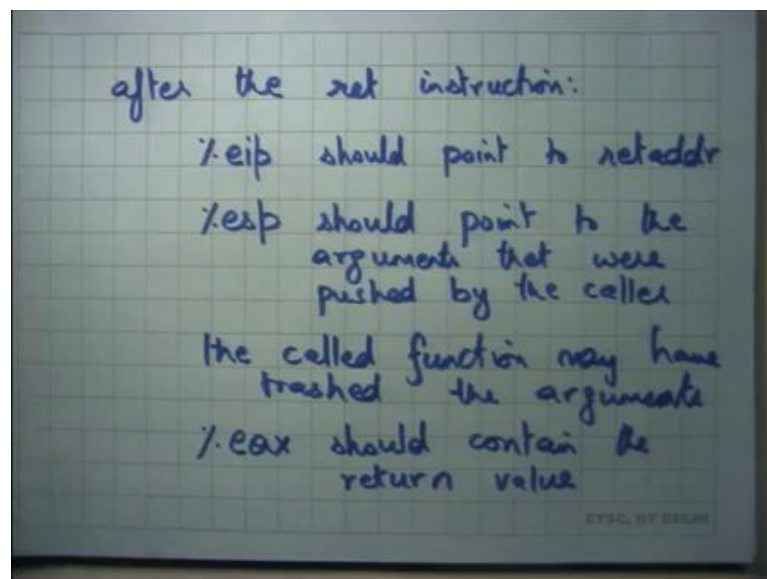 after the ret instruction:
%eip should point to retaddr
%esp should point to the
arguments that were
pushed by the caller
the called function may have
trashed the arguments
%eax should contain the
return value
ETSC, IIT DELHI